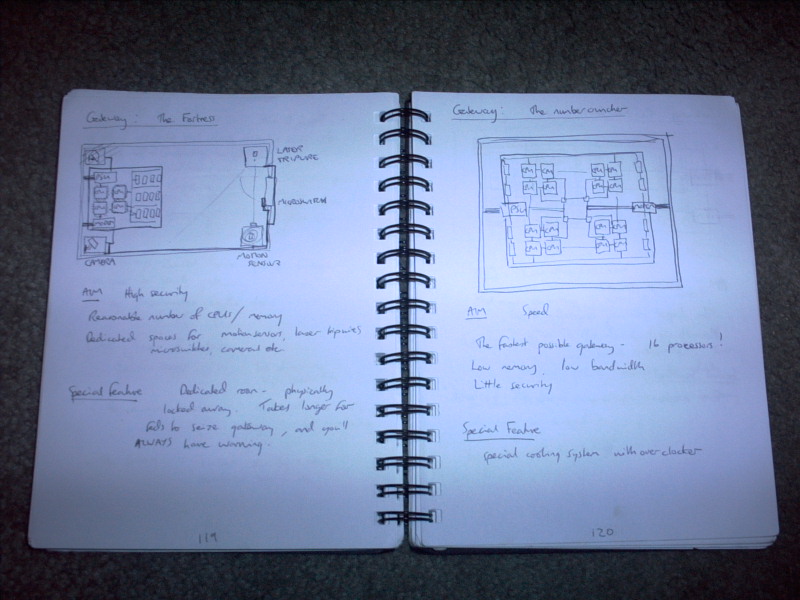 Gateway: The Fortress
LASER
TRIPWIRE
PSU
CPU
CPU
CPU
CPU
MICROSWITCH
CAMERA
MOTION
SENSOR
AIM High security
Reasonable number of CPUs / memory
Dedicated spaces for motion sensors, laser tripwires
microswitches, cameras etc
Special Feature Dedicated room - physically
locked away. Takes longer for
Feds to seize gateway, and you'll
ALWAYS have warning.
119
Gateway: The numbercruncher
CPU CPU CPU CPU
CPU CPU CPU CPU
PSU
CPU CPU CPU CPU
CPU CPU CPU CPU
AIM Speed
The fastest possible gateway - 16 processors!
Low memory, low bandwidth
Little security
Special Feature
Special cooling system with overclocker
120